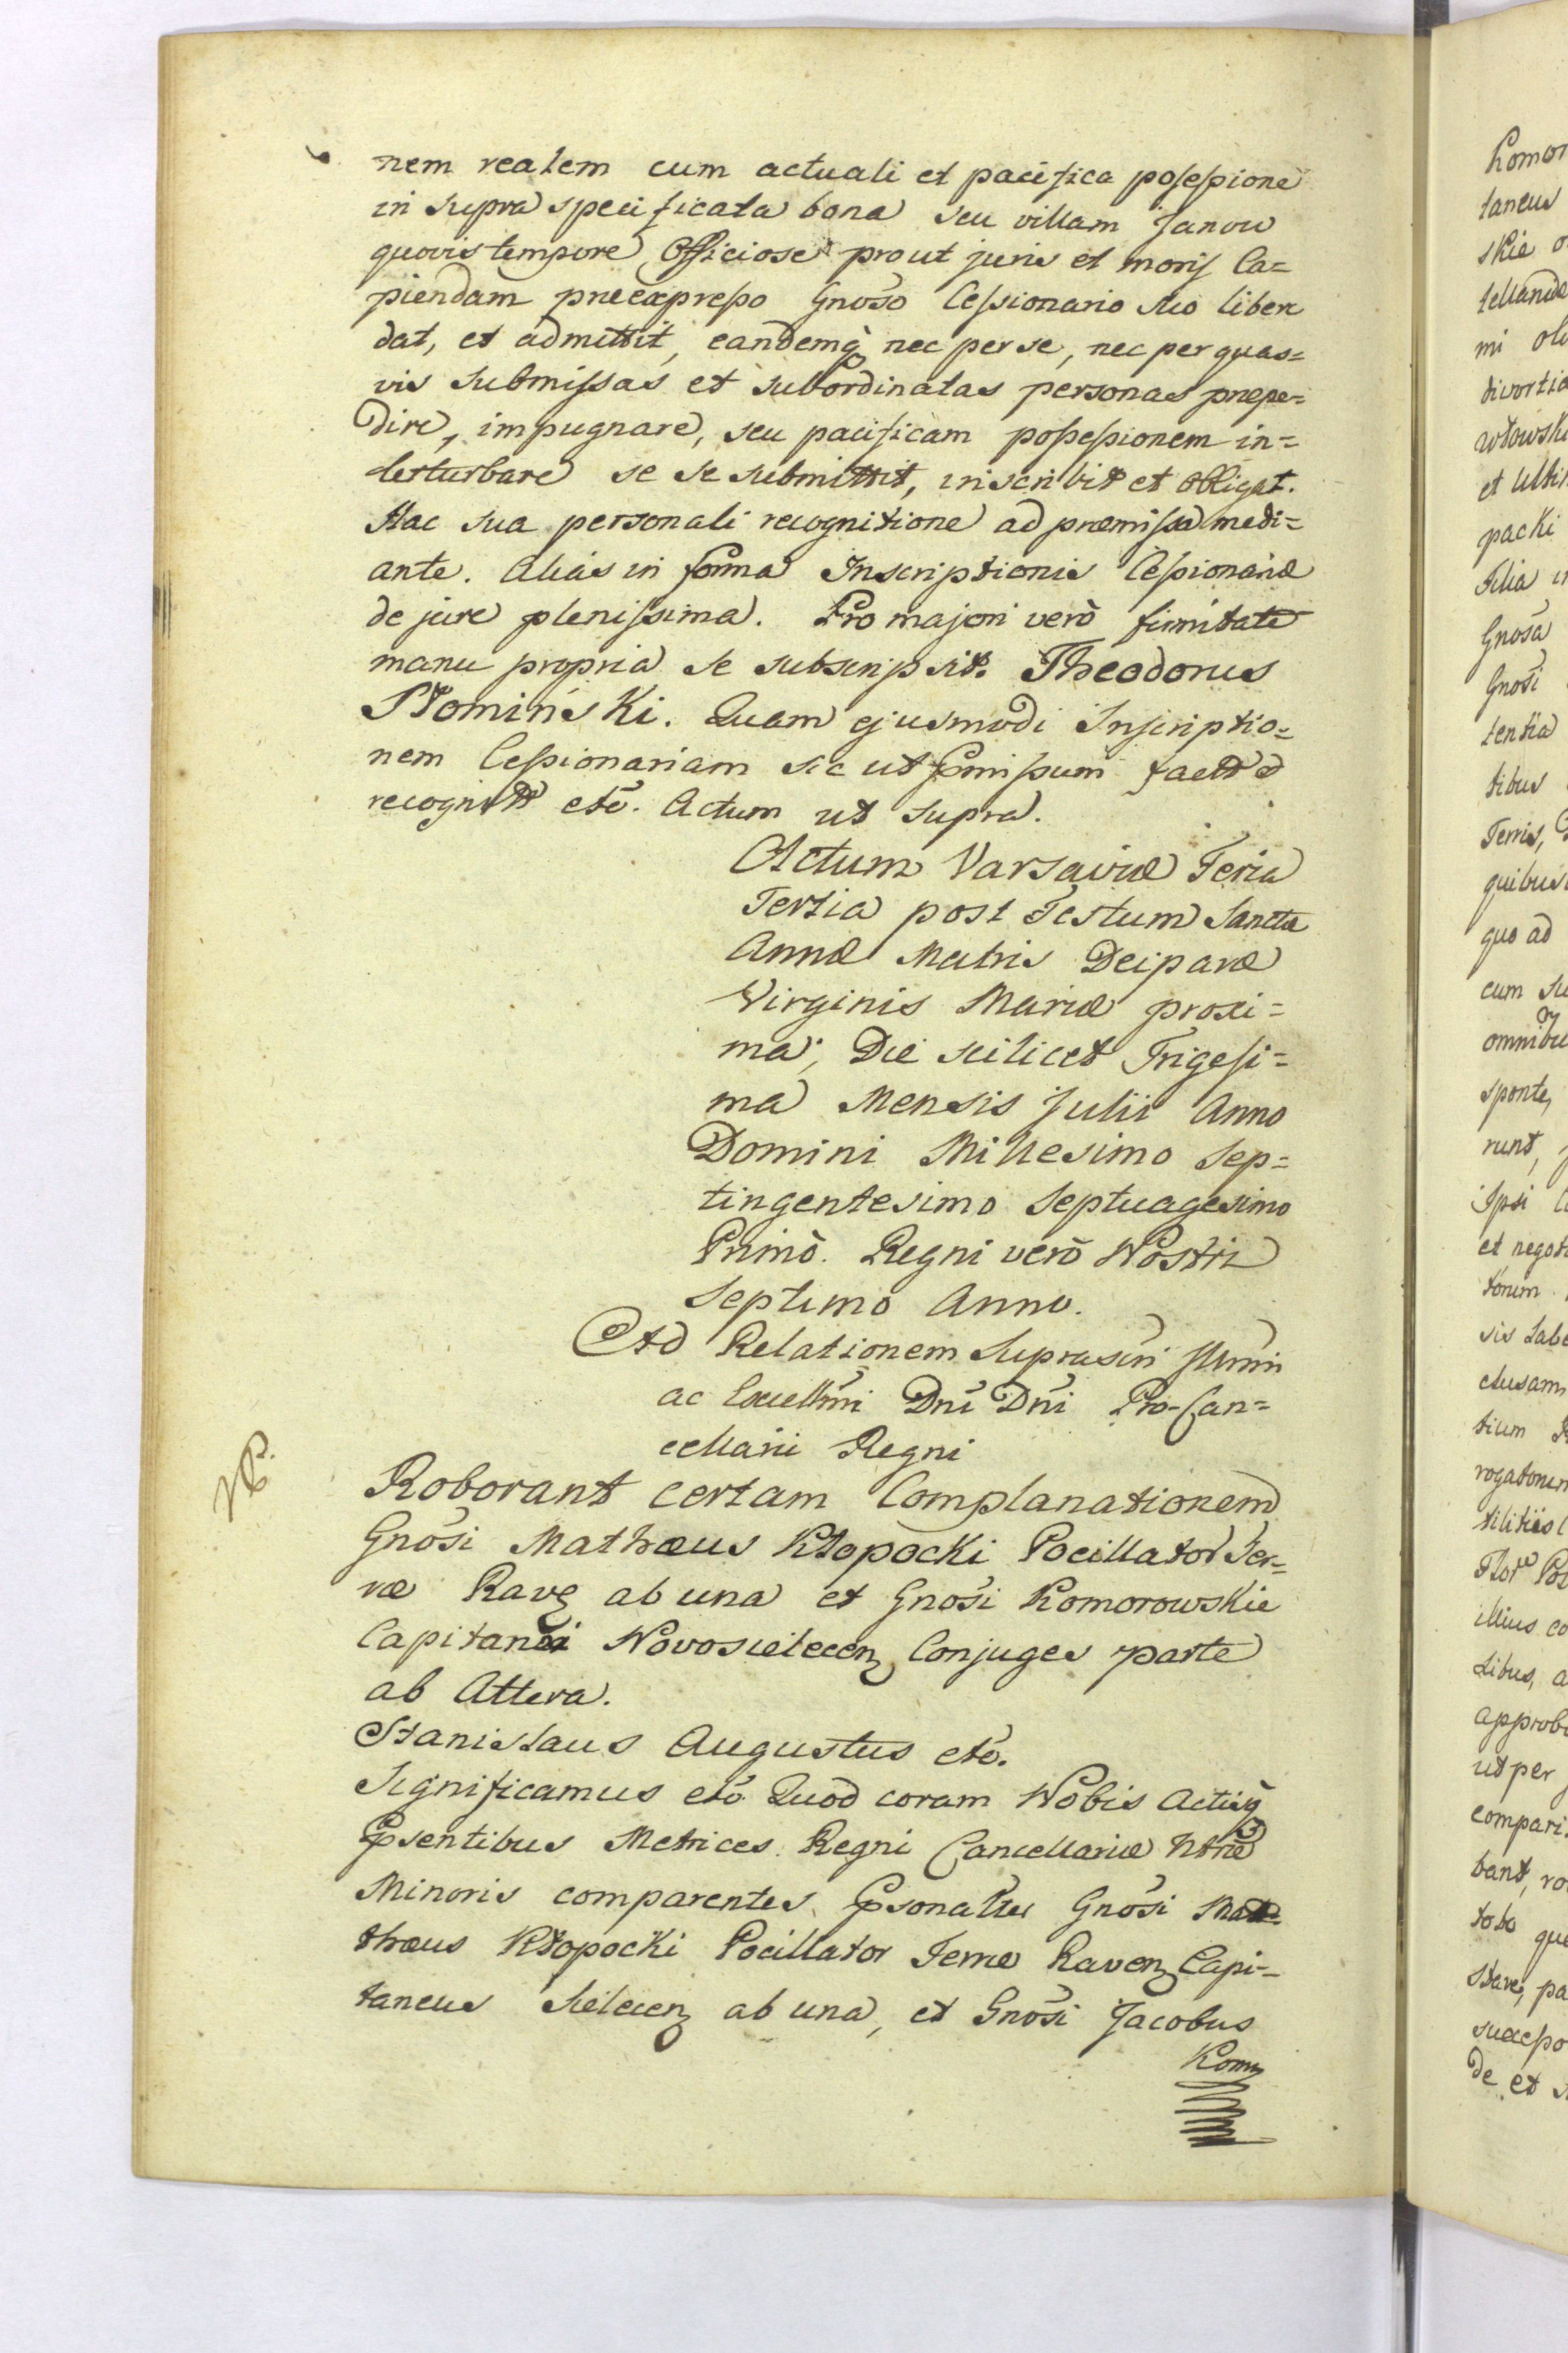 nem realem cum actuali et pacifica posessione
in supra specificata bona seu villam Janow
quovis tempore Officiose prout juris et moris Ca=
piendam præexpresso Gnoso Cessionario suo libere
dat, et admittit, eandemq nec per se, nec per quas=
vis submissas et subordinatas personas præpe=
dire, impugnare, seu pacificam possessionem in=
terturbare se se submittit, inscribit et obligat.
Hac sua personali recognitione ad præmissa medi=
ante. Alias in forma Inscriptionis Cessionariæ
de jure plenissima. Pro majori verò firmitate
manu propria se subscripsit. Theodorus
Słomiński. Quam ejusmodi Inscriptio=
nem Cessionariam sic ut pmissum factt
recognitt etc. Actum ut supra.
Actum Varsaviæ Feria
Tertia post Festum Sanctæ
Annæ Matris Deiparæ
Virginis Mariæ proxi=
ma, Die scilicet Trigesi=
ma Mensis Julii Anno
Domini Millesimo Sep=
tingentesimo Septuagesimo
Primò. Regni verò Nostri
Septimo Anno.
Ad Relationem Suprascri Illmi
ac Excellmi Dni Dni Pro-Can=
cellarii Regni
NB.
Roborant certam Complanationem
Gnosi Mathæus Kłopocki Pocillator Ter=
ræ Rav ab una et Gnosi Komorowskie
Capitanei Novosielecen Conjuges parte
ab Altera.
Stanislaus Augustus etc.
Significamus etc Quod coram Nobis Actisq
Psentibus Metrices Regni Cancellariæ Ntræ
Minoris comparentes Psonalter Gnosi Mat=
thæus Kłopocki Pocillator Terræ Raven Capi=
taneus Sielecen ab una, et Gnosi Jacobus
Kom
Komor
taneus
skie
tellanidæ
mi
divortia
włowski
et Ulti
packi
Filia
Gnosa
Gnosi
tentia
tibus
Terris,
quibus
quo ad
cum
omnibu
sponte,
runt,
Ipsi
et negot
torum
sis
clusam
tium
rogatonem
tilitiis

illius co
tibus, a
approb
ut per
compari
bant, ro
toto que
stare, pa
suscepo
de et